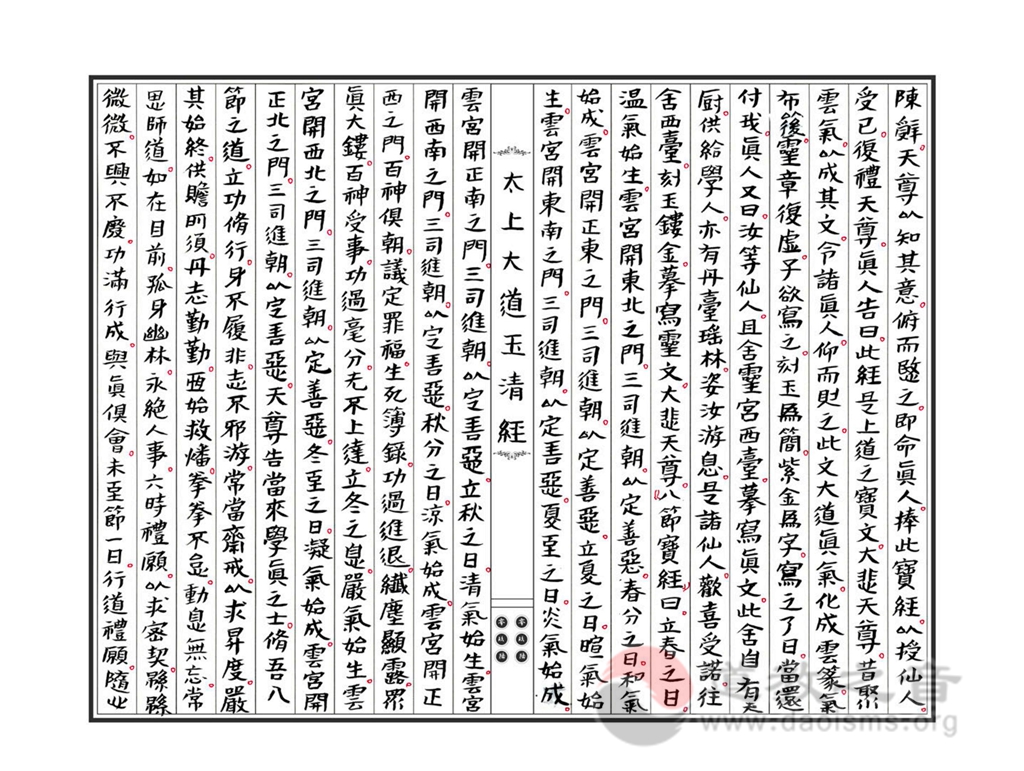 陳辭天尊以知其意俯而盻之即命真人捧此寶經以授仙人
受已復禮天尊真人告曰此經是上道之寶文大悲天尊昔聚
雲氣以成其文令諸真人仰而則之此文大道真氣化成雲篆氣
布後靈章復虛子欲寫之刻玉為簡紫金為字寫之了日當還
付我真人又曰汝等仙人且舍靈宮西臺摹寫真文此舍自有天
厨供給學人亦有丹臺瑶林姿汝游息是諸仙人歡喜受諾往
舍西臺刻玉鏤金摹寫靈文大悲天尊八節寶經曰立春之日
温氣始生雲宮開東北之門三司進朝以定善惡春分之日和氣
始成雲宮開正東之門三司進朝以定善惡立夏之日暄氣始
生雲宮開東南之門三司進朝以定善惡夏至之日炎氣始成
太上大道玉清經
雲宮開正南之門三司進朝以定善惡立秋之日清氣始生雲宮
開西南之門三司進朝以定善惡秋分之日涼氣始成雲宮開正
西之門百神俱朝議定罪福生死簿錄功過進退纖塵顯露界
真大鏤百神受事功過毫分无不上達立冬之息嚴氣始生雲
宮開西北之門三司進朝以定善惡冬至之日凝氣始成雲宮開
正北之門三司進朝以定善惡天尊告當來學真之士脩吾八
節之道立功脩行身不履非志不邪游常當齋戒以求昇度嚴
其始終供贍所須丹志勤勤亟始救燔拳拳不怠動息無忘常
思師道如在目前孤身幽林永絕人事六時禮願以求審契縣縣
微微不興不廢功滿行成與真俱會未至節一日行道禮願隨此
道教之音
www.daoisms.org